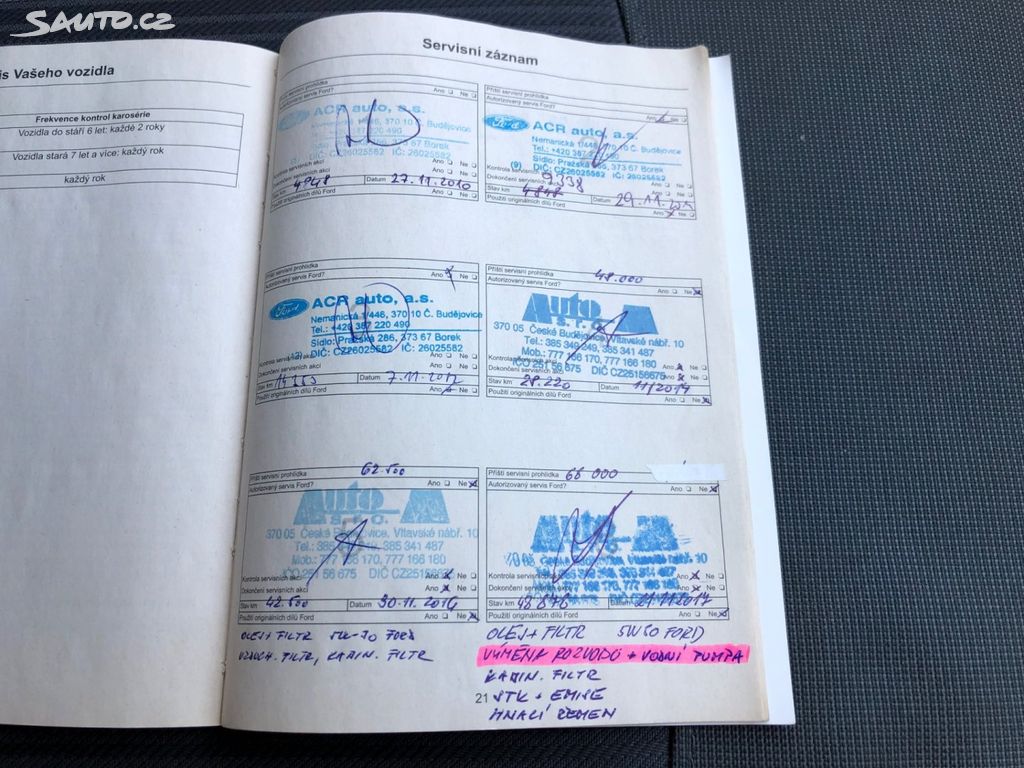 SAUTO.CZ
is Vašeho vozidla
Frekvence kontrol karosérie
Vozidla do stáří 6 let: každé 2 roky
Vozidla stará 7 let a více: každý rok
každý rok
Servisní záznam
Příští servisní prohlídka
Autorizovaný servis Ford? Ano Ne
ACR auto, a.s.
Nemanická 1/446, 370 10 Č. Budějovice
387 220 490
373 67 Borek
DIČ: CZ26025582 IČ: 26025582
Ano Ne
Dokončení servisních akcí Ano Ne
Stav km 4848 Datum 27.11.2010
Použití originálních dílů Ford Ano Ne
Příští servisní prohlídka
Autorizovaný servis Ford?
Ford ACR auto, a.s.
Nemanická 1/446, 370 10 Č. Budějovice
Tel.: +420 387 220 490
Sídlo: Pražská 286, 373 67 Borek
(9) DIČ: CZ26025582 IČ: 26025582
Kontrola servisních 9338 Ano Ne
Dokončení servisních akcí Ano Ne
Stav km 4848 Datum 29.11.
Použití originálních dílů Ford Ano Ne
Příští servisní prohlídka
Autorizovaný servis Ford? Ano Ne
Ford ACR auto, a.s.
Nemanická 1/446, 370 10 Č. Budějovice
Tel.: +420 387 220 490
Sídlo: Pražská 286, 373 67 Borek
DIČ: CZ26025582 IČ: 26025582
Ano Ne
Dokončení servisních akcí Ano Ne
Stav km Datum 7.11.2012
Použití originálních dílů Ford Ano Ne
Příští servisní prohlídka 48.000
Autorizovaný servis Ford? Ano Ne
Auto A
s.r.o.
370 05 České Budějovice, Vltavské nábř. 10
Tel.: 385 349 349, 385 341 487
Mob.: 777 166 170, 777 166 180
IČO 251 56 675 DIČ CZ25156675
Kontrola servisních akcí Ano Ne
Dokončení servisních akcí Ano Ne
Stav km 28.220 Datum 11/2014
Použití originálních dílů Ford Ano Ne
Příští servisní prohlídka 62.500
Autorizovaný servis Ford? Ano Ne
Auto A
s.r.o.
370 05 České Budějovice, Vltavské nábř. 10
Tel.: 385 385 341 487
Mob.: 777 166 170, 777 166 180
IČO 251 56 675 DIČ CZ25156675
Kontrola servisních akcí Ano Ne
Dokončení servisních akcí Ano Ne
Stav km 42.500 Datum 30.11.2016
Použití originálních dílů Ford Ano Ne
OLEJ + FILTR 5W-30 FORD
VZDUCH. FILTR, KABIN. FILTR
Příští servisní prohlídka 68 000
Autorizovaný servis Ford? Ano Ne
Auto A
Kontrola servisních akcí Ano Ne
Dokončení servisních akcí Ano Ne
Stav km 48 876 Datum 21.11.2017
Použití originálních dílů Ford Ano Ne
OLEJ + FILTR 5W30 FORD
VÝMĚNA ROZVODŮ + VODNÍ PUMPA
KABIN. FILTR
STK + EMISE
HNACÍ ŘEMEN
21